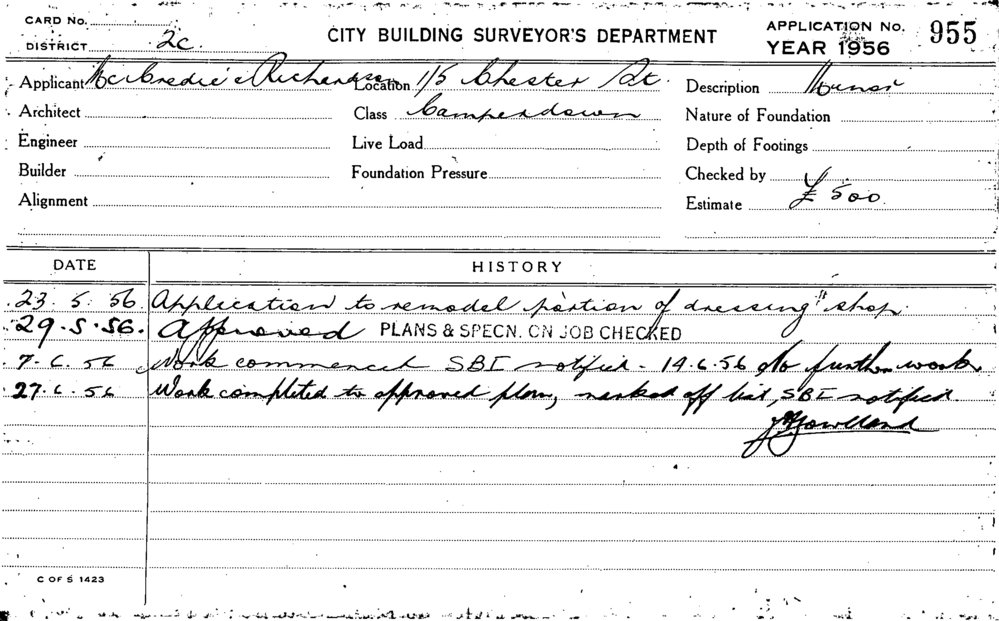 CARD No.
DISTRICT 2c.
CITY BUILDING SURVEYOR'S DEPARTMENT
APPLICATION No. 955
YEAR 1956
Applicant McCredie & Richardson Location 1/5 Chester St. Description Minor
Architect Class Camperdown Nature of Foundation
Engineer Live Load Depth of Footings
Builder Foundation Pressure Checked by
Alignment Estimate £ 500
DATE HISTORY
23.5.56 Application to remodel portion of dressing shop
29.5.56. Approved PLANS & SPECN. ON JOB CHECKED
7.6.56 Work commenced SBI notified - 14.6.56 No further work
27.6.56 Work completed to approved plan, marked off list, SBI notified.
C OF S 1423